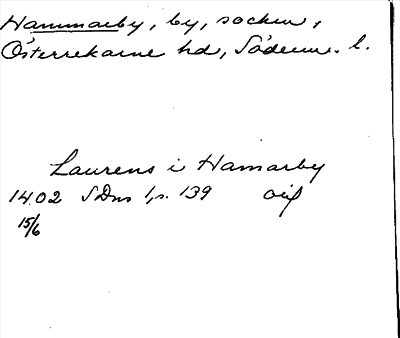 Hammarby, by, socken,
Österrekarne hd, Söderm. l.
Laurens i Hamarby
1402 SDns 1, s. 139 orig
15/6